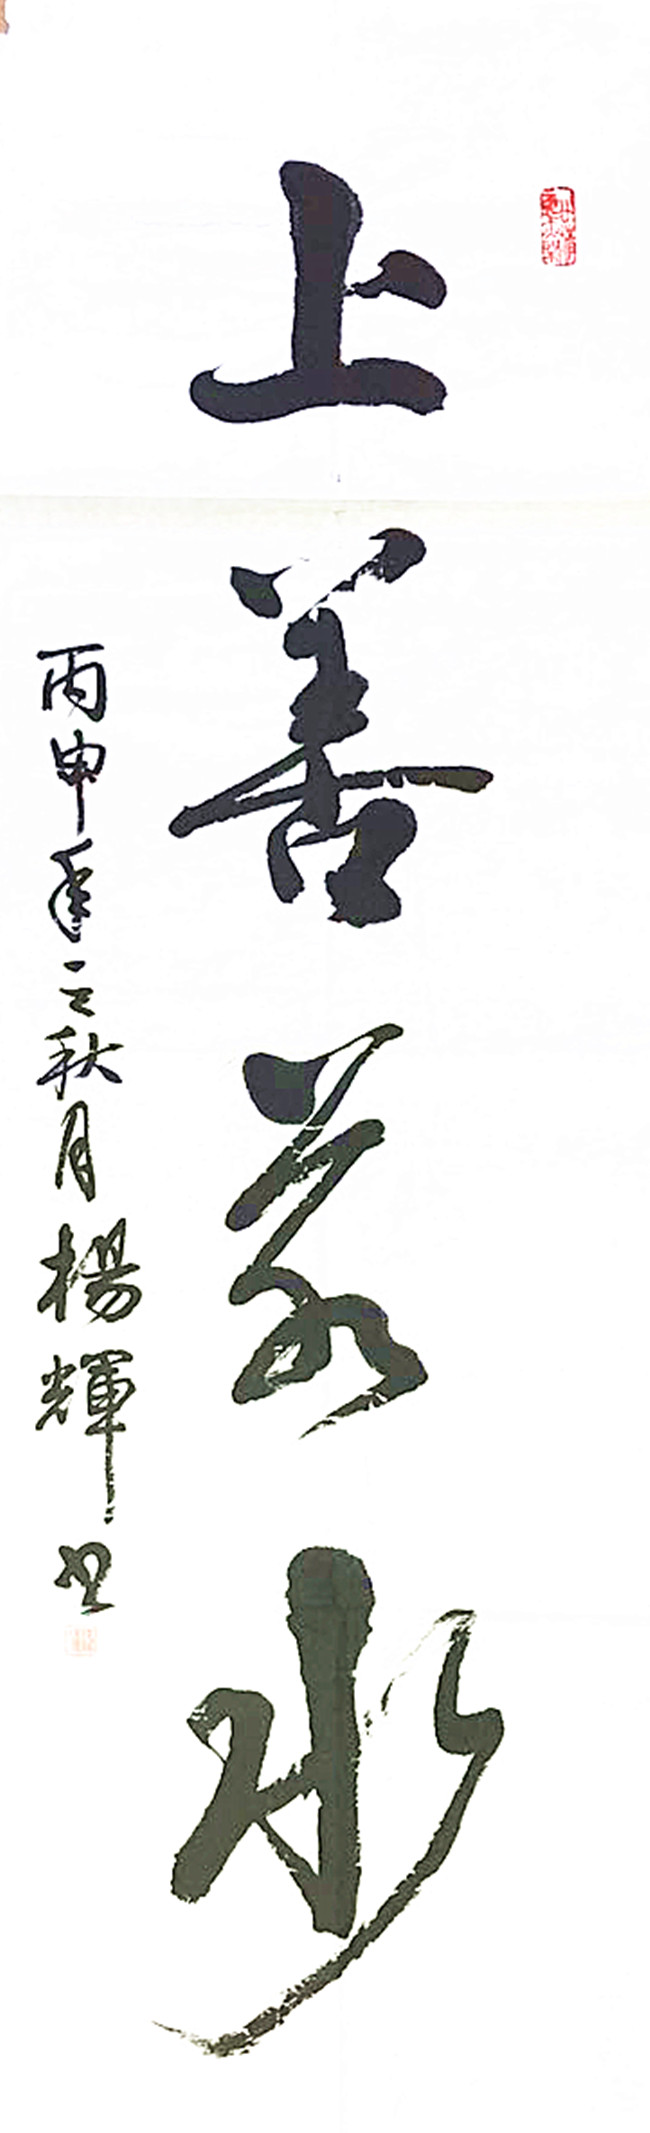 上善若水
丙申年之秋月楊輝书